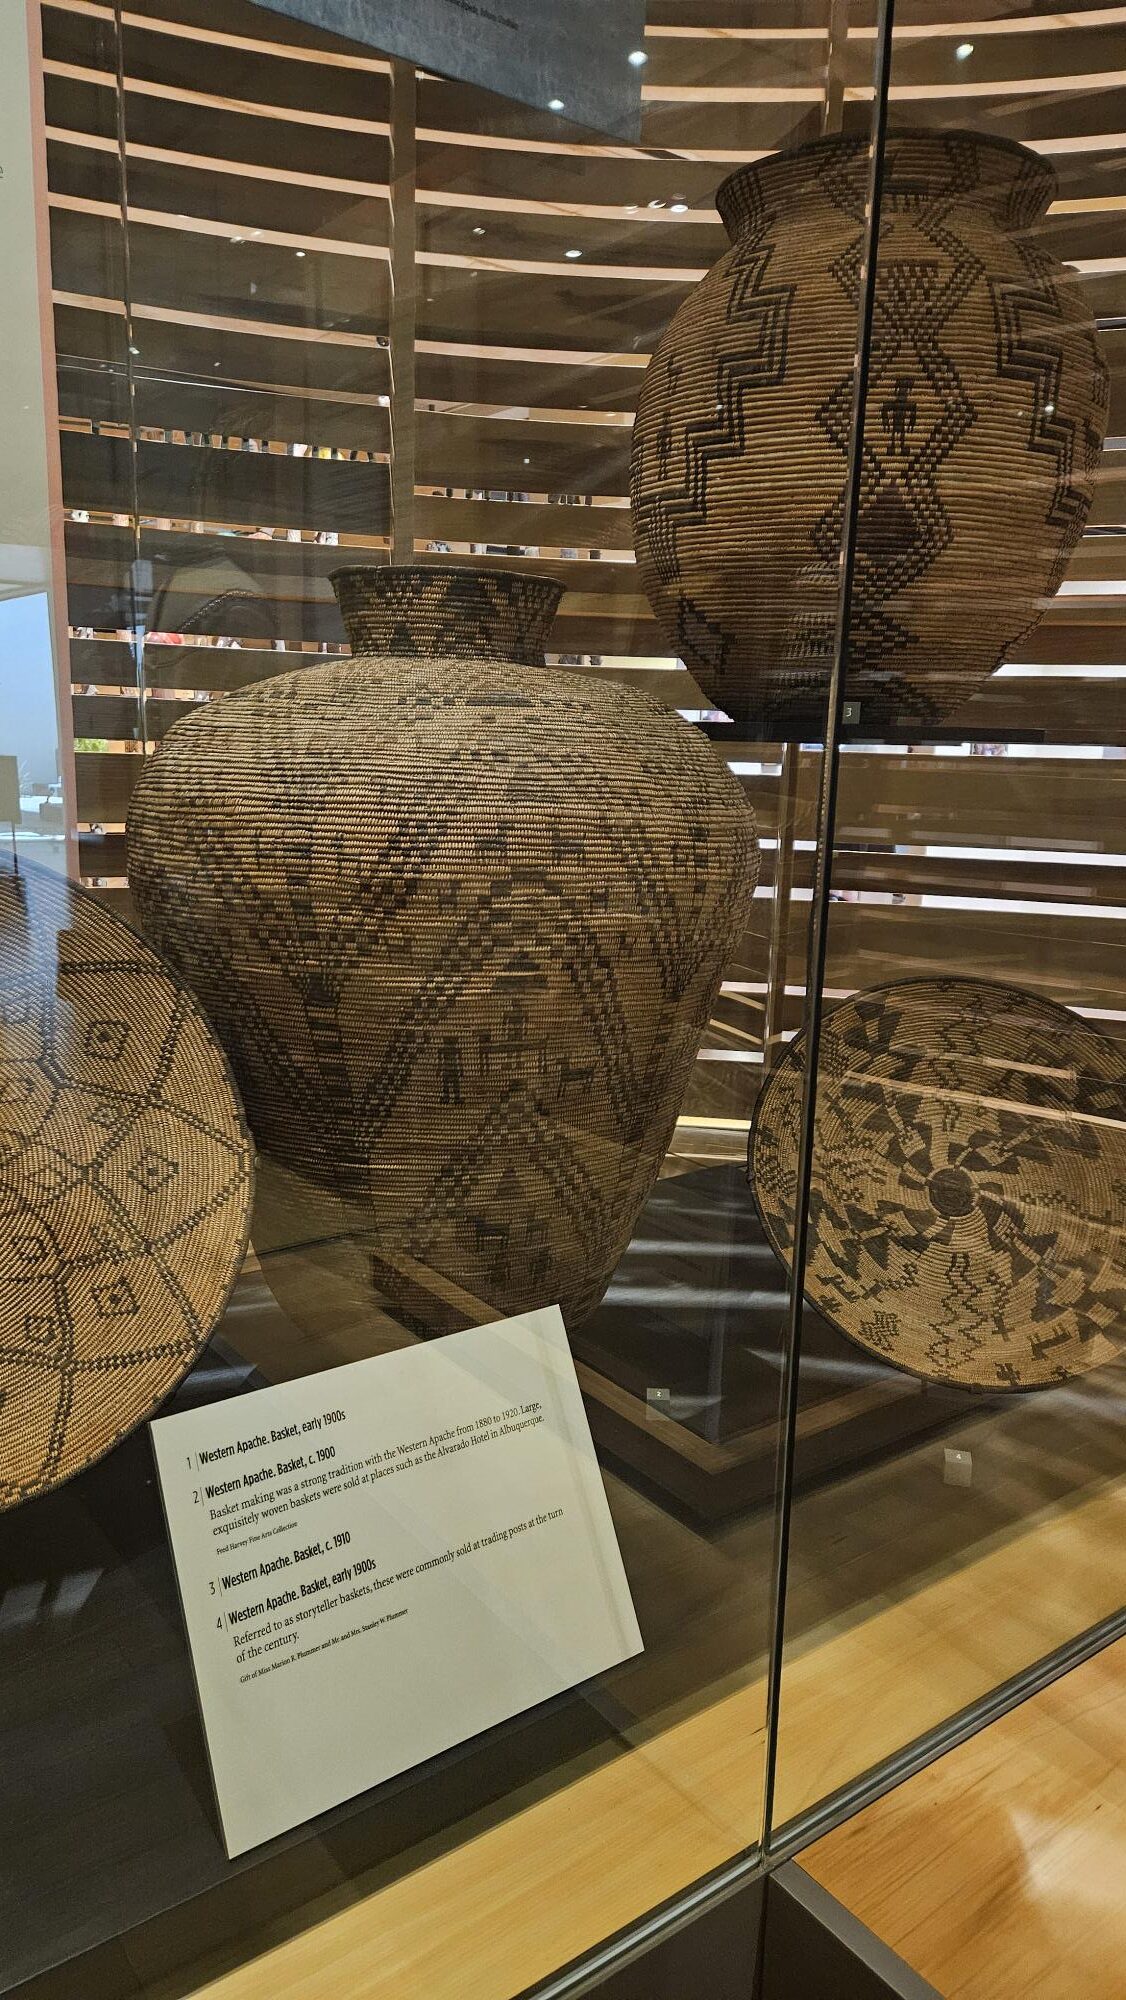 1 Western Apache. Basket, early 1900s
2 Western Apache. Basket, c. 1900
Basket making was a strong tradition with the Western Apache from 1880 to 1920. Large,
exquisitely woven baskets were sold at places such as the Alvarado Hotel in Albuquerque.
Fred Harvey Fine Arts Collection
3 Western Apache. Basket, c. 1910
4 Western Apache. Basket, early 1900s
Referred to as storyteller baskets, these were commonly sold at trading posts at the turn
of the century.
Gift of Miss Marion R. Plummer and Mr. and Mrs. Stanley W. Plummer
3
2
4